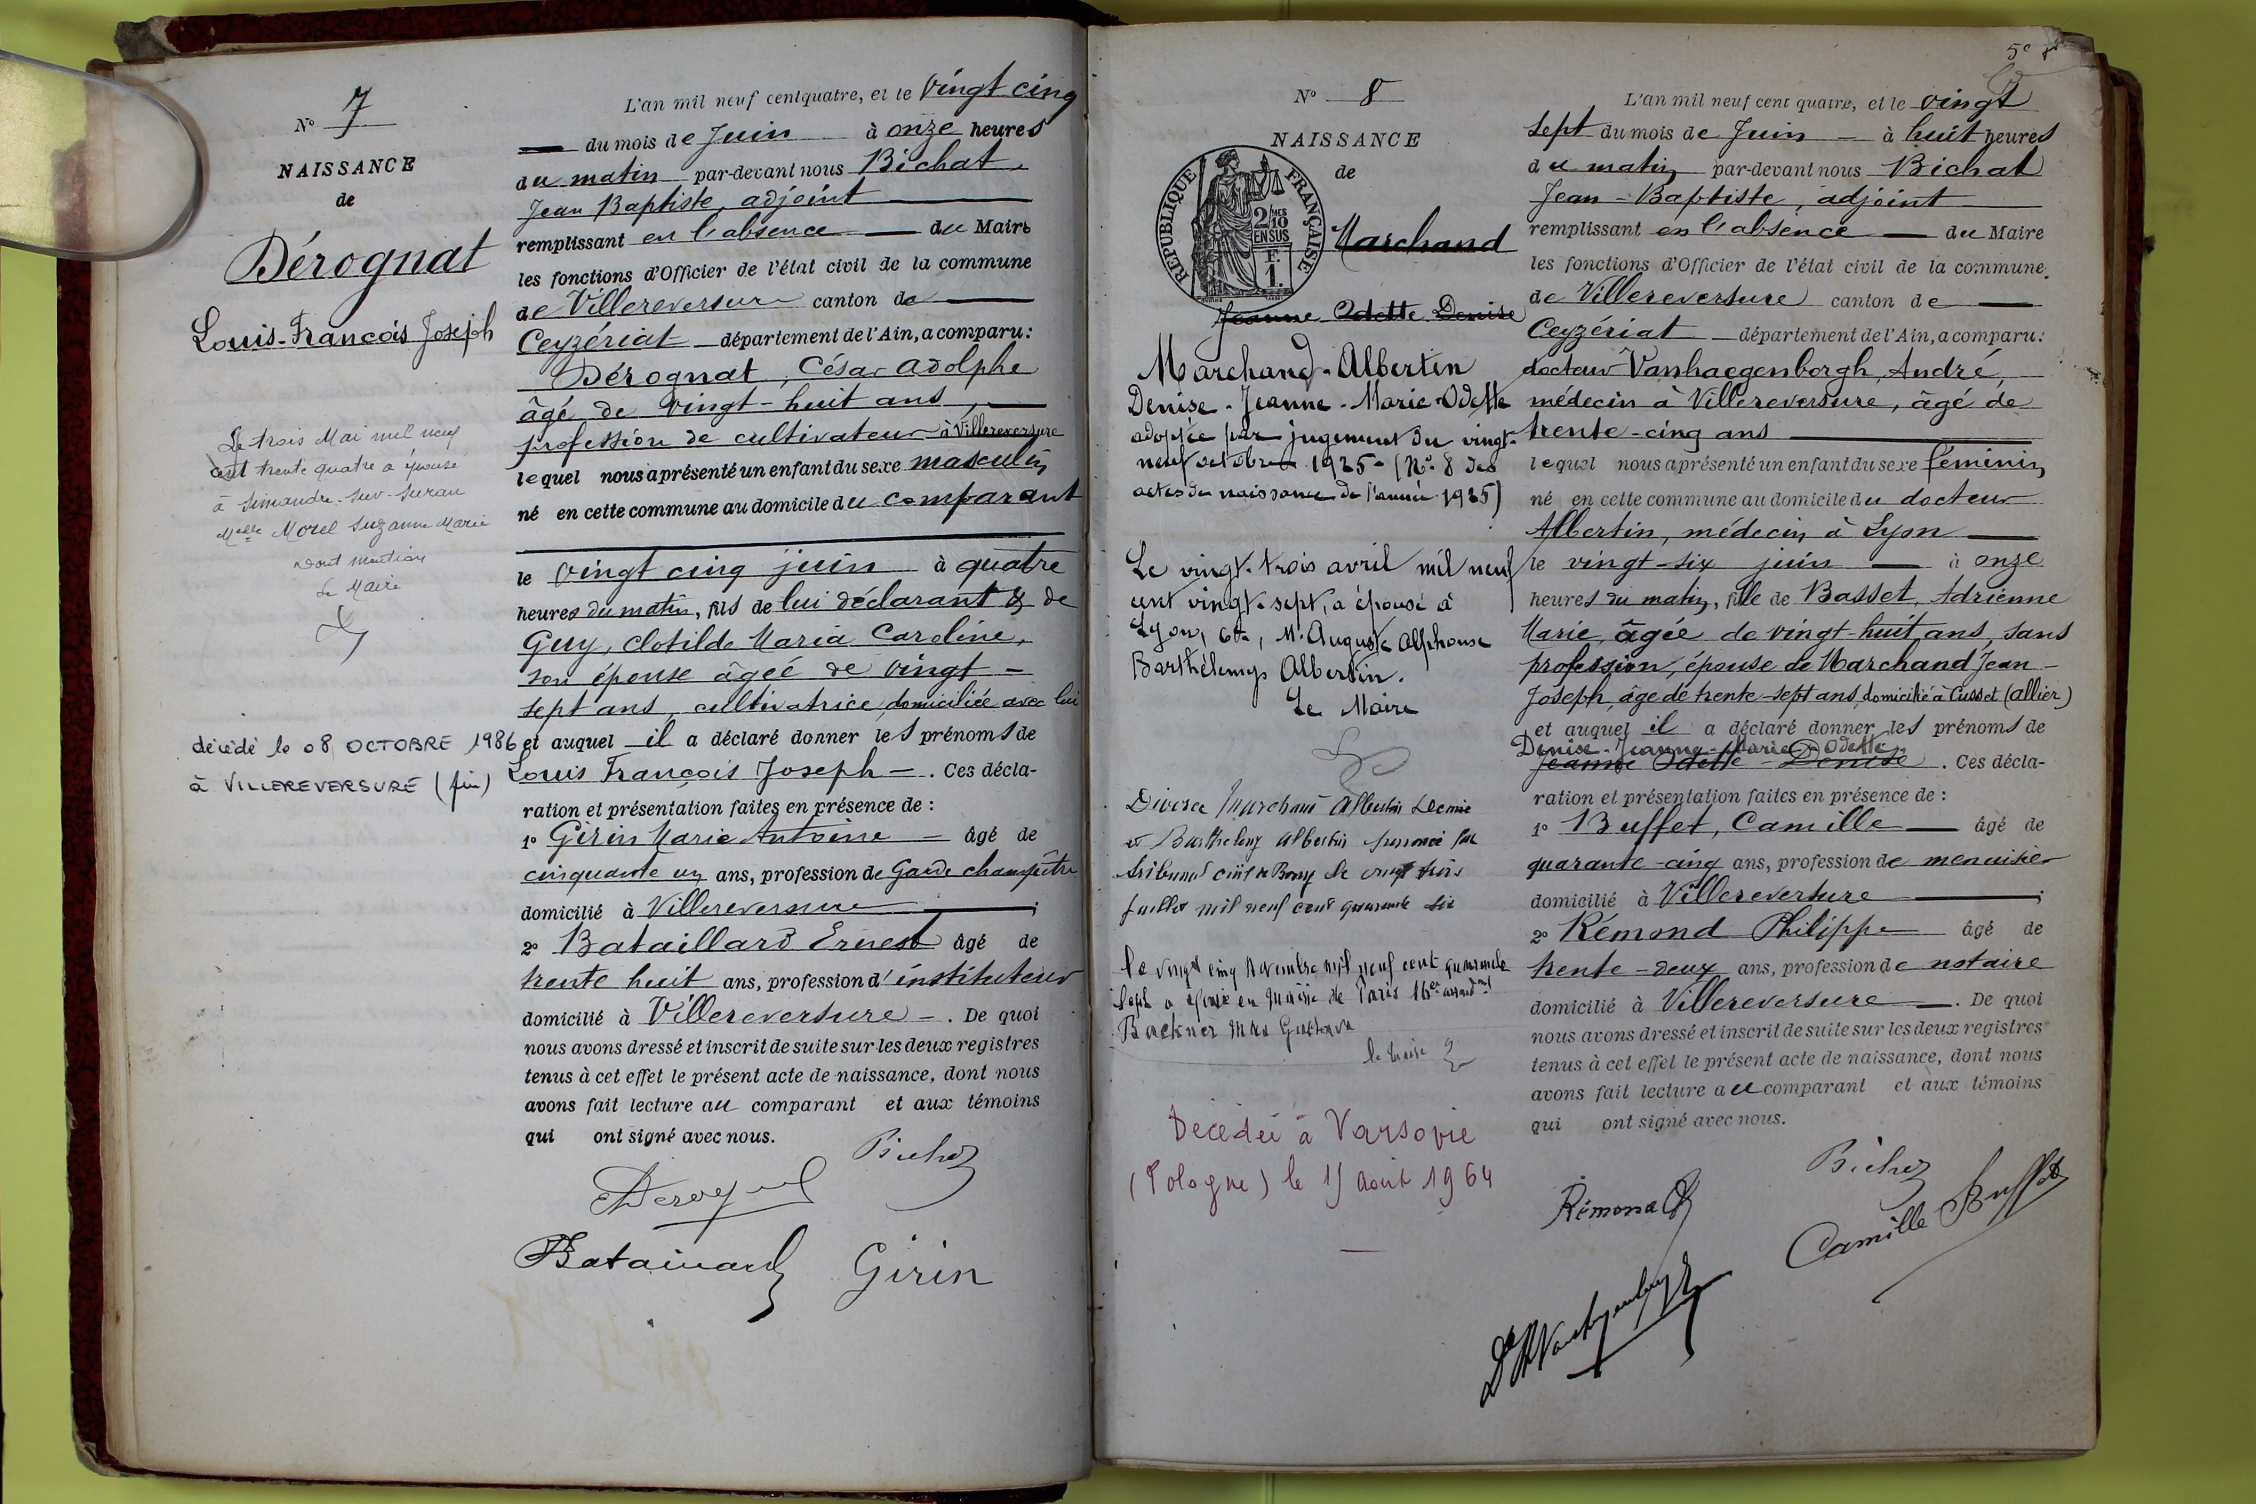 N° 7
NAISSANCE
de
Dérognat
Louis-François Joseph
Le trois Mai mil neuf
cent trente quatre a épousé
à Simandre-sur-Suran
Melle Morel Suzanne Marie
Dont mention
Le Maire
décédé le 08 OCTOBRE 1986
à VILLEREVERSURE (Ain)
L'an mil neuf cent quatre, et le vingt cinq
du mois de Juin à onze heures
du matin par-devant nous Bichat,
Jean Baptiste, adjoint
remplissant en l'absence du Maire
les fonctions d'Officier de l'état civil de la commune
de Villereversure canton de
Ceyzériat département de l'Ain, a comparu:
Dérognat, César Adolphe
âgé de vingt-huit ans,
profession de cultivateur à Villereversure
lequel nous a présenté un enfant du sexe masculin
né en cette commune au domicile du comparant
le vingt cinq juin à quatre
heures du matin, fils de lui déclarant & de
Guy, Clotilde Maria Caroline,
son épouse âgée de vingt-
sept ans, cultivatrice, domiciliée avec lui
et auquel il a déclaré donner les prénoms de
Louis François Joseph. Ces décla-
ration et présentation faites en présence de :
1° Girin Marie Antoine âgé de
cinquante un ans, profession de Garde champêtre
domicilié à Villereversure ;
2° Bataillard Ernest âgé de
trente huit ans, profession d'instituteur
domicilié à Villereversure. De quoi
nous avons dressé et inscrit de suite sur les deux registres
tenus à cet effet le présent acte de naissance, dont nous
avons fait lecture au comparant et aux témoins
qui ont signé avec nous.
Bichat
Derognat
Bataillard Girin
5e
N° 8
NAISSANCE
de
REPUBLIQUE FRANÇAISE
2/10 MES
EN SUS
F.
1.
Marchand
Jeanne Odette Denise
Marchand-Albertin
Denise-Jeanne-Marie-Odette
adoptée par jugement du vingt-
neuf octobre 1925- (N° 8 des
actes de naissance de l'année 1925)
Le vingt-trois avril mil neuf
cent vingt-sept, a épousé à
Lyon, 6e, Mr Auguste Alphonse
Barthélemy Albertin.
Le Maire
Divorce Marchand Albertin Denise
et Barthelemy Albertin prononcé par
tribunal civil de Bourg le vingt trois
juillet mil neuf cent quarante six
le vingt cinq Novembre mil neuf cent quarante
sept a épousé en mairie de Paris 16e arrondmt
Backner Max
le Maire
Décédée à Varsovie
(Pologne) le 15 août 1964
L'an mil neuf cent quatre, et le vingt
sept du mois de Juin à huit heures
du matin par-devant nous Bichat
Jean-Baptiste, adjoint
remplissant en l'absence du Maire
les fonctions d'Officier de l'état civil de la commune.
de Villereversure canton de
Ceyzériat département de l'Ain, a comparu:
docteur Vanhaegenborgh, André,
médecin à Villereversure, âgé de
trente-cinq ans
lequel nous a présenté un enfant du sexe féminin
né en cette commune au domicile du docteur
Albertin, médecin à Lyon
le vingt-six juin à onze
heures du matin, fille de Basset, Adrienne
Marie, âgée de vingt-huit ans, sans
profession, épouse de Marchand Jean-
Joseph, âgé de trente-sept ans, domicilié à Cusset (Allier)
et auquel il a déclaré donner les prénoms de
Denise-Jeanne-Marie-Odette
Jeanne Odette-Denise. Ces décla-
ration et présentation faites en présence de :
1° Buffet, Camille âgé de
quarante-cinq ans, profession de menuisier
domicilié à Villereversure ;
2° Rémond Philippe âgé de
trente-deux ans, profession de notaire
domicilié à Villereversure. De quoi
nous avons dressé et inscrit de suite sur les deux registres
tenus à cet effet le présent acte de naissance, dont nous
avons fait lecture au comparant et aux témoins
qui ont signé avec nous.
Bichat
Rémond
Camille Buffet